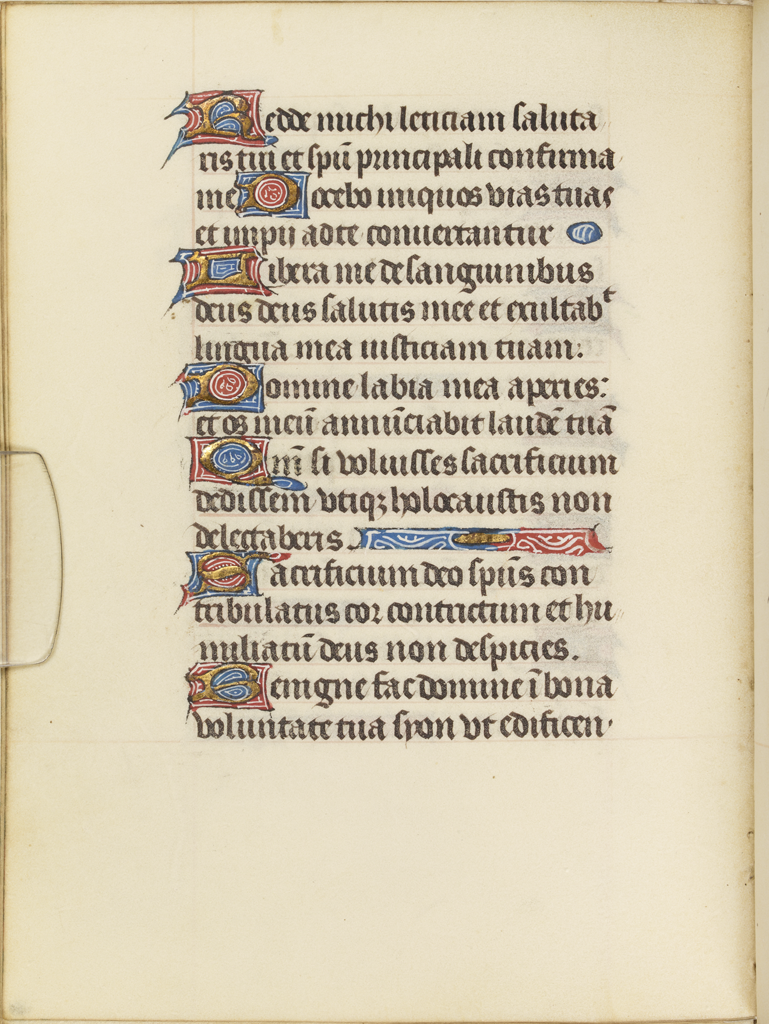 Redde michi leticiam saluta
ris tui et spū principali confirma
me Docebo iniquos vias tuas
et impii ad te convertantur
Libera me de sanguinibus
deus deus salutis mee et exultabᵗ
lingua mea iusticiam tuam:
Domine labia mea aperies:
et os meū annūciabit laudē tuā
Qm̄ si voluisses sacrificium
dedissem utiqꝫ holocaustis non
delectaberis.
Sacrificium deo spūs con
tribulatus cor contrictum et hu
miliatū deus non despicies.
Benigne fac domine ī bona
voluntate tua syon ut edificen